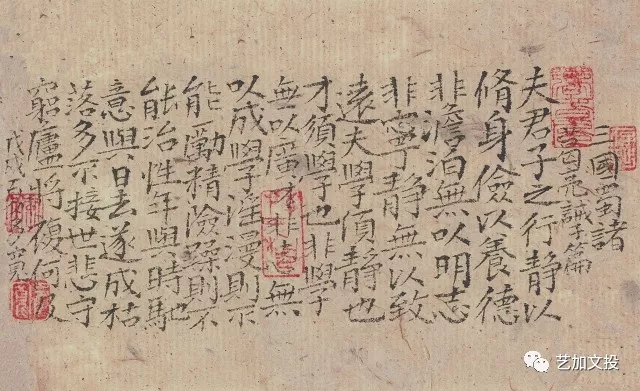 三國蜀諸
葛亮誡子篇
夫君子之行靜以
脩身儉以養德
非澹泊無以明志
非寧靜無以致
遠夫學須靜也
才須學也非學
無以廣才非志無
以成學淫漫則不
能勵精險躁則不
能治性年與時馳
意與日去遂成枯
落多不接世悲守
窮廬將復何及
戊戌
艺加文投